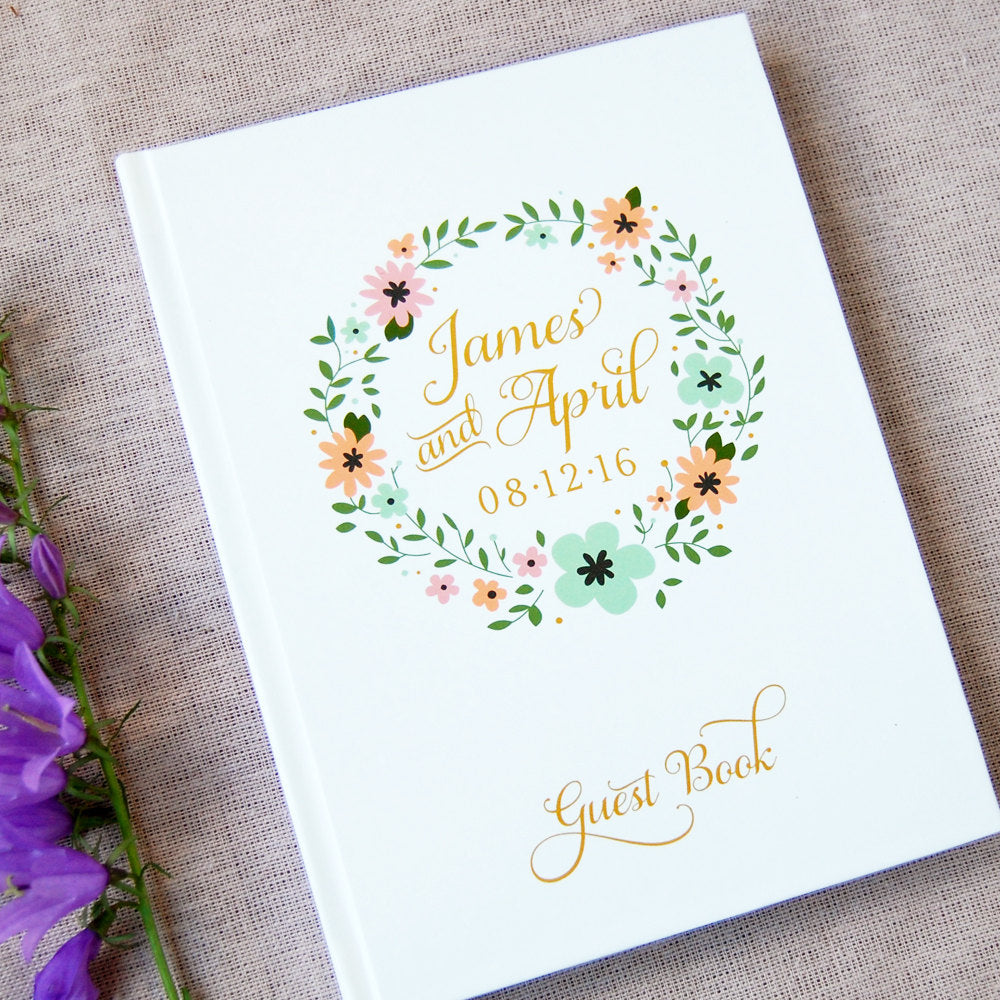 James
and April
08·12·16
Guest Book